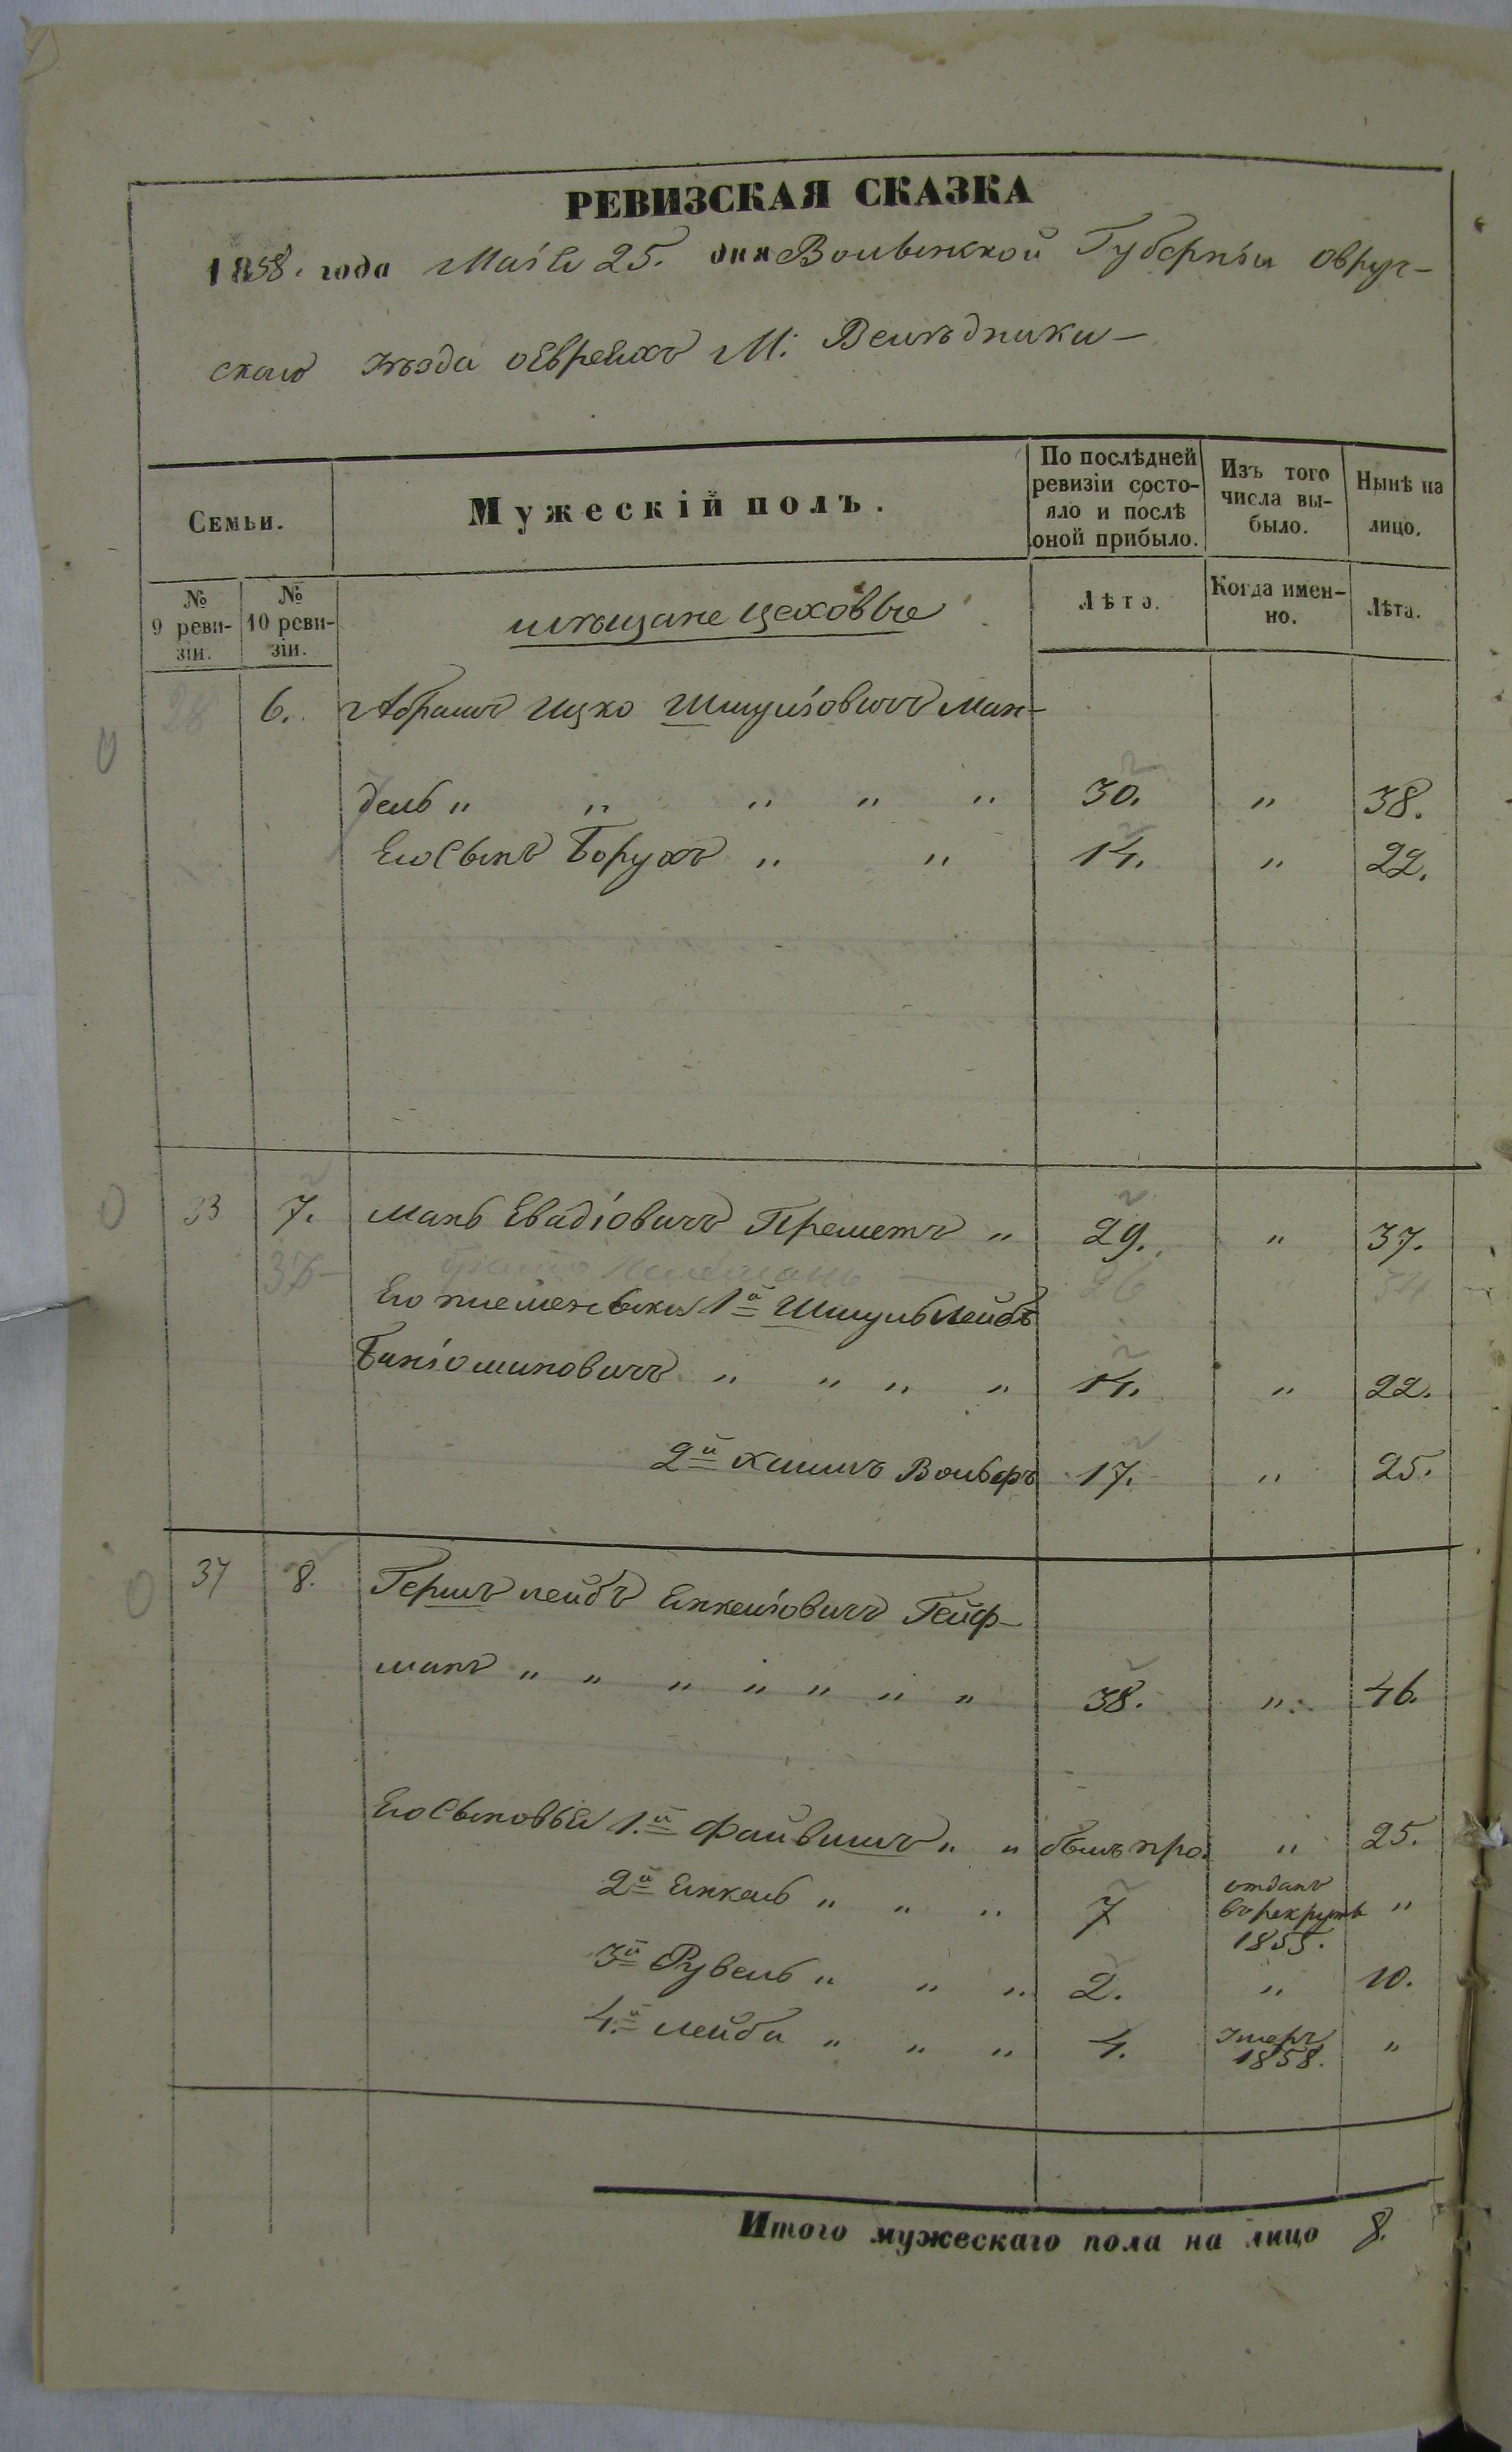 РЕВИЗСКАЯ СКАЗКА
1858. года Маія 25. дня Волынской Губерніи Овруч-
скаго уѣзда о Евреяхъ М. Велѣдники
Семьи.
Мужескій полъ.
По послѣдней ревизіи состо-яло и послѣ оной прибыло.
Изъ того числа вы-было.
Нынѣ на лицо.
№ 9 реви-зіи.
№ 10 реви-зіи.
мѣщане цеховые
Лѣта.
Когда имен-но.
Лѣта.
28 6. Абрамъ Ицко Шмуліовичъ Ман-
дель " " " " " 30. " 38.
Его Сынъ Борухъ " " 14. " 22.
33 7. Мань Евадіовичъ Преметъ " 29. " 37.
Его племянники 1й Шмуль Лейбъ
Баніоминовичъ " " " " 14. " 22.
2й Хаимъ Вольфъ 17. " 25.
37 8. Гершъ Лейбъ Янкеліовичъ Гейф-
манъ " " " " " " " 38. " 46.
Его Сыновья 1.й Файвишъ " " былъ про. " 25.
2й Янкель " " " 7 отданъ въ рекруты 1855. "
3й Рувель " " " 2. " 10.
4.й Лейба " " " 4. умеръ 1858. "
Итого мужескаго пола на лицо 8.